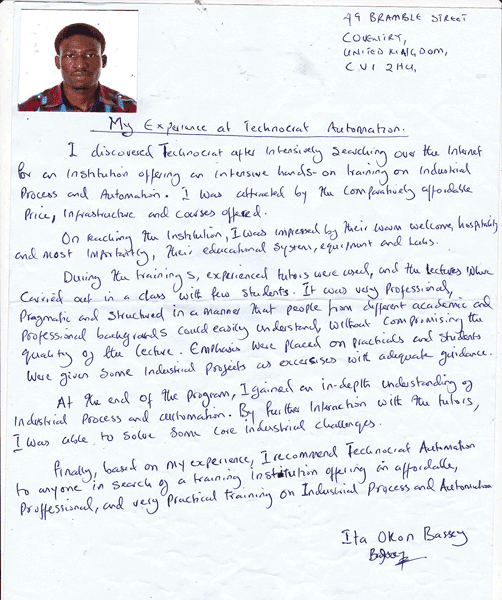 49 BRAMBLE STREET
COVENTRY,
UNITED KINGDOM,
CV1 2HU.
My Experience at Technocrat Automation.
I discovered Technocrat after Intensively Searching over the Internet
for an Institution offering an intensive hands-on training on Industrial
Process and Automation. I was attracted by the Comparatively affordable
Price, Infrastructure and courses offered.
On reaching the Institution, I was impressed by their warm welcome, hospitality
and most importantly, their educational System, equipment and Labs.
During the trainings, experienced tutors were used, and the lectures where
Carried out in a class with few students. It was very Professional,
Pragmatic and Structured in a manner that people from different academic and
Professional backgrounds could easily understand, without Compromising the
quality of the lecture. Emphasis were placed on practicals and students
were given Some Industrial Projects as excersises with adequate guidance.
At the end of the program, I gained an in-depth understanding of
Industrial Process and automation. By further Interaction with the tutors,
I was able to Solve Some Core industrial challenges.
Finally, based on my experience, I recommend Technocrat Automation
to anyone in search of a training Institution offering an affordable,
Proffessional, and very Practical training on Industrial Process and Automation
Ita Okon Bassey